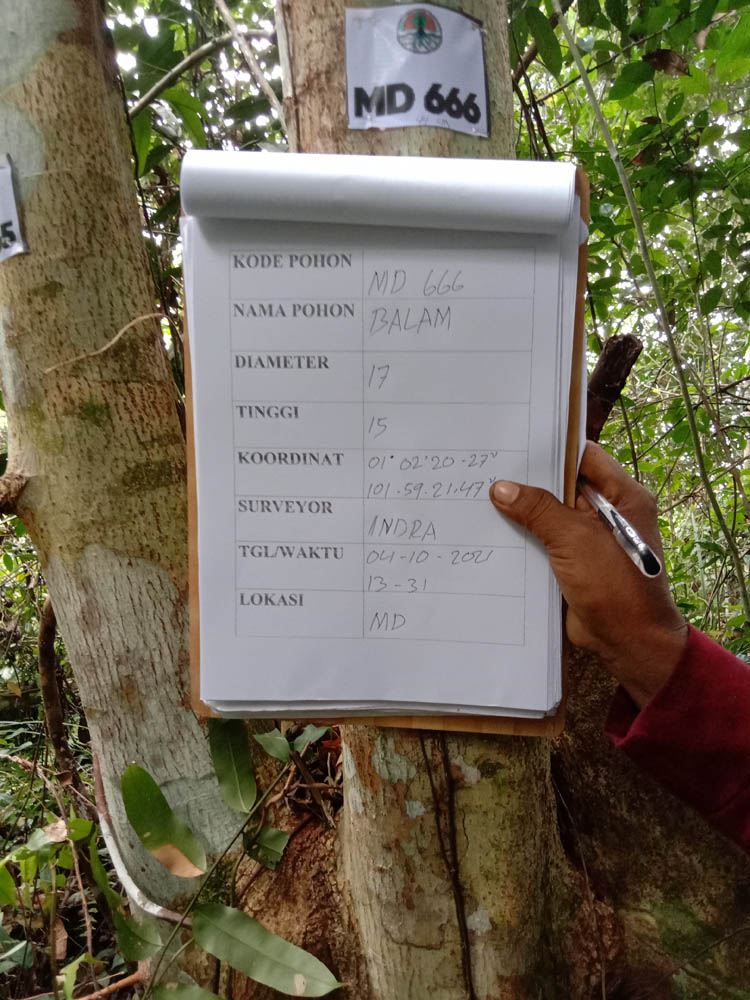 MD 666
KODE POHON MD 666
NAMA POHON BALAM
DIAMETER 17
TINGGI 15
KOORDINAT 01° 02' 20-27"
101-59.21.47"
SURVEYOR INDRA
TGL/WAKTU 04-10-2021
13-31
LOKASI MD